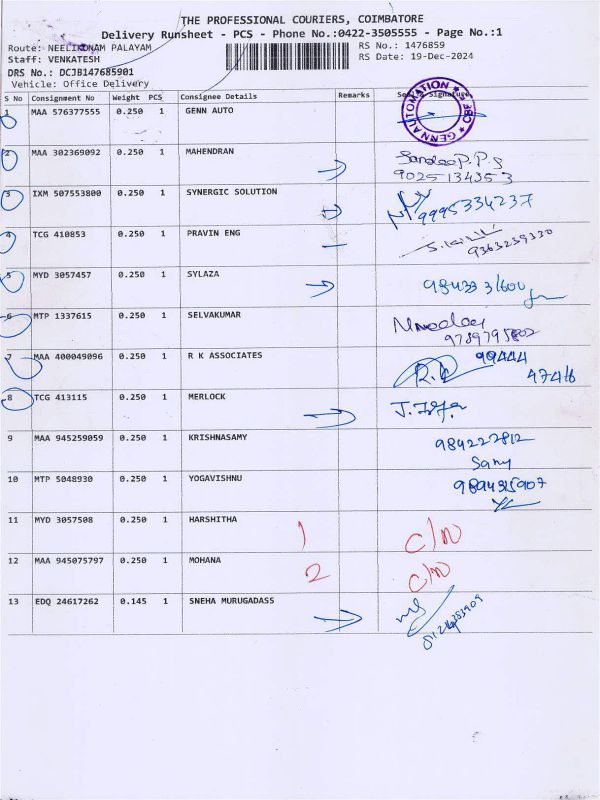 THE PROFESSIONAL COURIERS, COIMBATORE
Delivery Runsheet - PCS - Phone No.:0422-3505555 - Page No.:1
Route: NEELIKONAM PALAYAM RS No.: 1476859
Staff: VENKATESH RS Date: 19-Dec-2024
DRS No.: DCJB147685901
Vehicle: Office Delivery
S No Consignment No Weight PCS Consignee Details Remarks Seal & Signature
1 MAA 576377555 0.250 1 GENN AUTO GENN AUTOMATION CBE
2 MAA 302369092 0.250 1 MAHENDRAN Sandeep.P.S
9025134353
3 IXM 507553800 0.250 1 SYNERGIC SOLUTION 9995334237
4 TCG 410853 0.250 1 PRAVIN ENG
9363239330
5 MYD 3057457 0.250 1 SYLAZA 9843331600
6 MTP 1337615 0.250 1 SELVAKUMAR
9789795802
7 MAA 400049096 0.250 1 R K ASSOCIATES R.K 99444
47416
8 TCG 413115 0.250 1 MERLOCK
9 MAA 945259059 0.250 1 KRISHNASAMY 984222812
Samy
10 MTP 5048930 0.250 1 YOGAVISHNU 9894315907
11 MYD 3057508 0.250 1 HARSHITHA 1 C/N
12 MAA 945075797 0.250 1 MOHANA 2 C/N
13 EDQ 24617262 0.145 1 SNEHA MURUGADASS